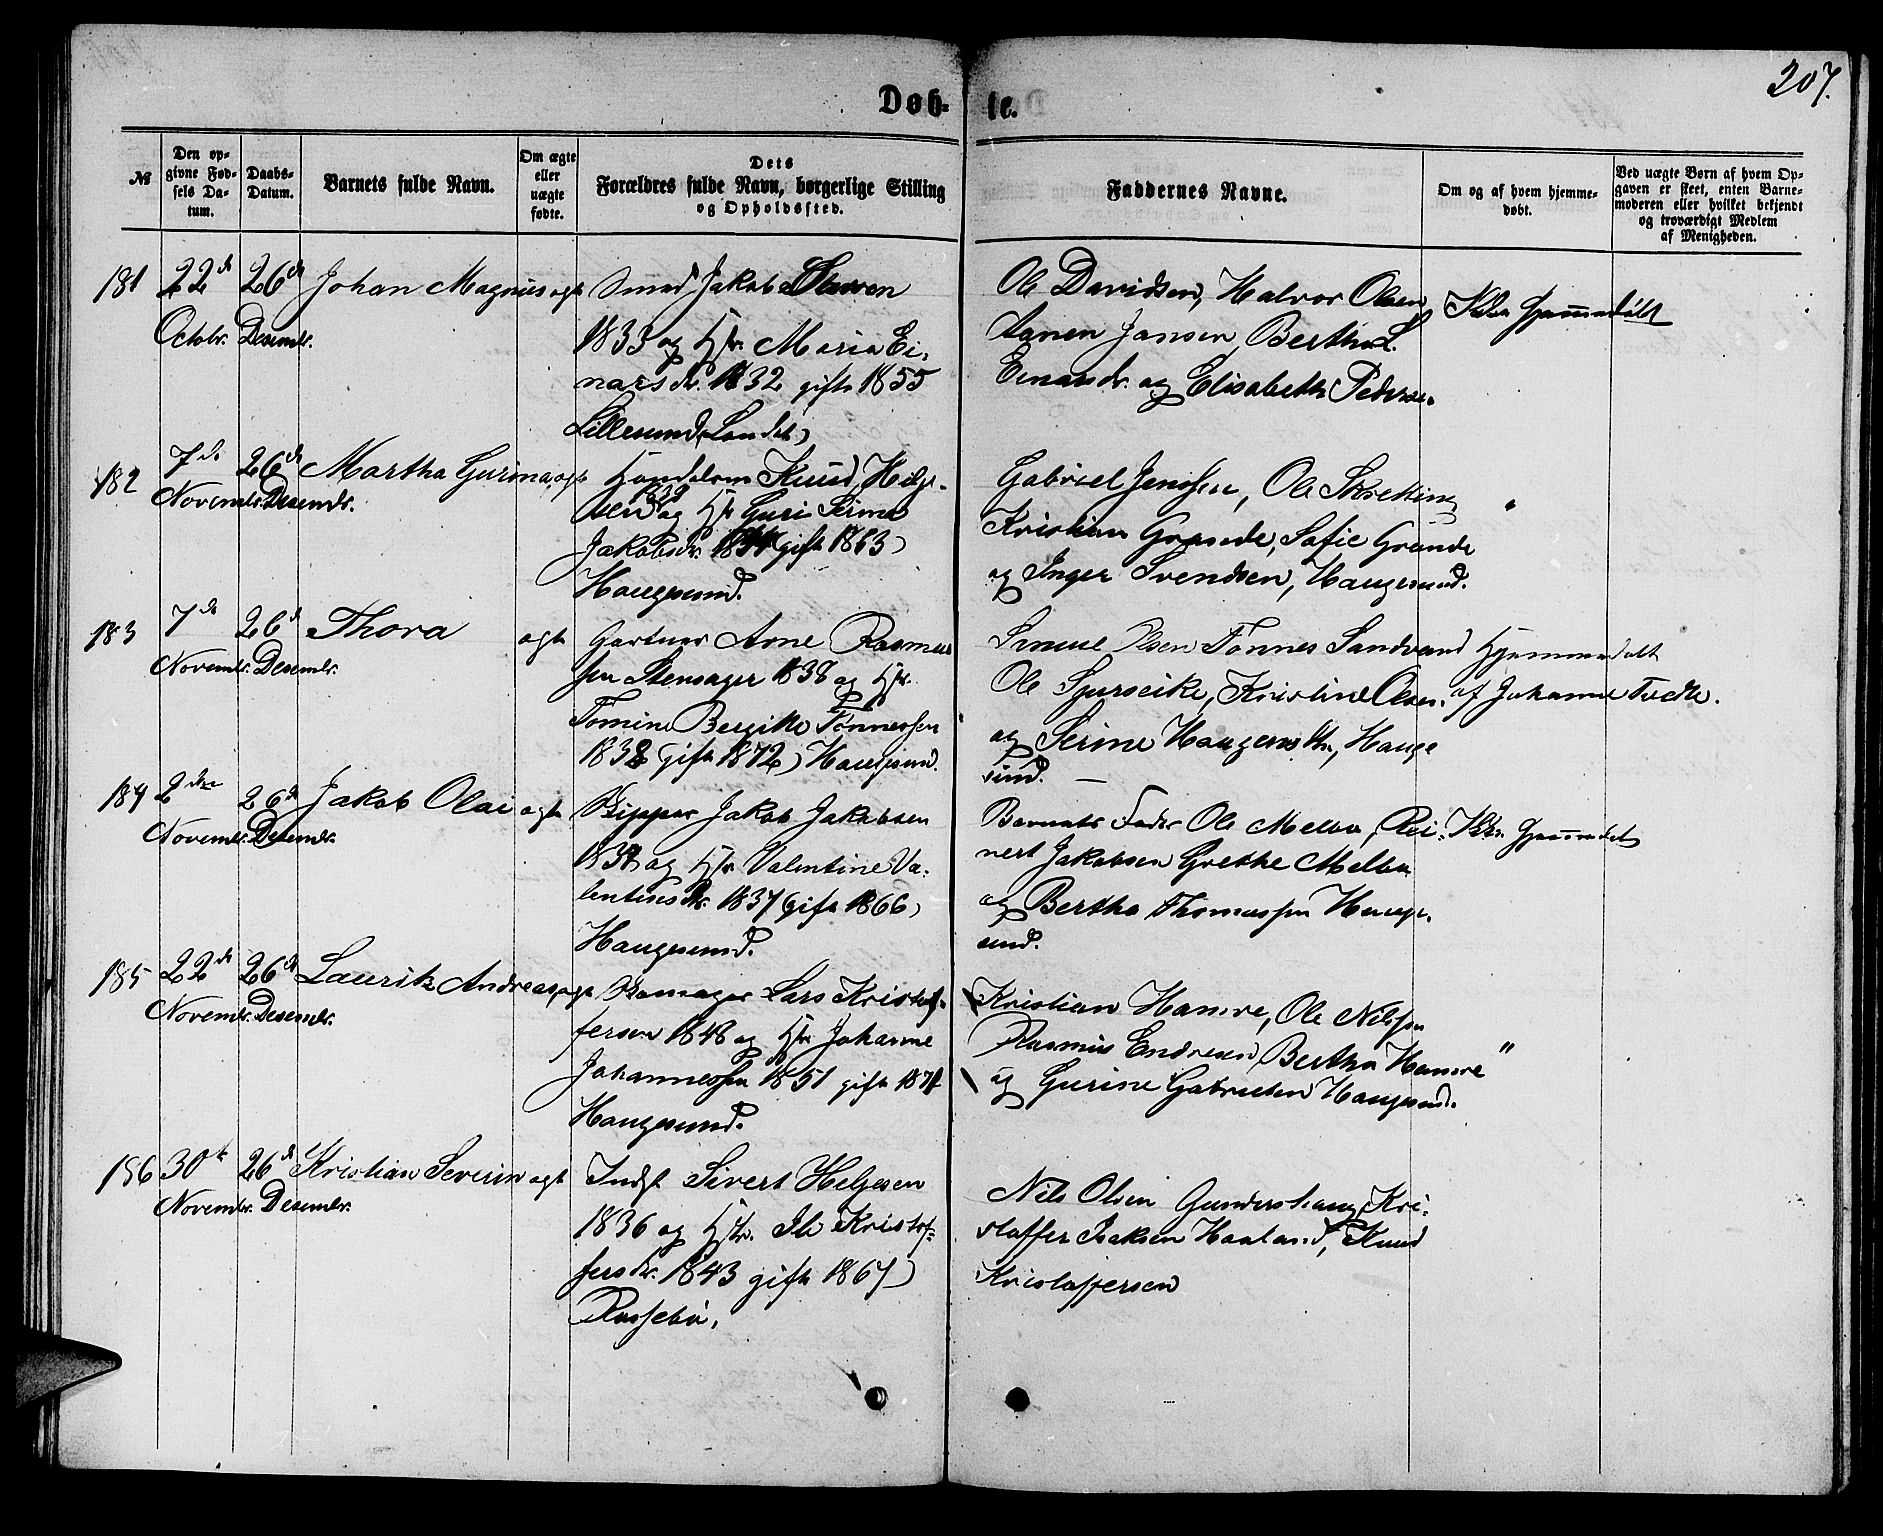 207.
Døb-
te.
№
Den op-
givne Fød-
sels Da-
tum.
Daabs-
Datum.
Barnets fulde Navn.
Om ægte
eller
uægte
fødte.
Dets
Forældres fulde Navn, borgerlige Stilling
og Opholdssted.
Faddernes Navne.
Om og af hvem hjemme-
døbt.
Ved uægte Børn af hvem Op-
gaven er skeet, enten Barne-
moderen eller hvilket bekjendt
og troværdigt Medlem
af Menigheden.
181 22de 26de Johan Magnus ægte Smed Jakob
Octobr. Desembr.
1833 og Hstr. Maria Ei-
narsdr. 1832 gift 1855
Lillesund (Landet)
Ole Davidsen, Halvor Olsen
Jansen, Berthe L.
Einarsdr. og Elisabeth Peders.
Ikke Hjemmedøbt
182 7de 26de Martha Gurina ægte Knud Helge-
Novembr. Desembr.
og Hstr Guri Serine
Jakobsdr. gift 1863)
Haugesund.
Gabriel Jenssen, Ole Skretting
Kristian Grande, Sofie Grande
og Inger Svendsen, Haugesund.
"
183 7de 26de Thora ægte Gartner Arne Rasmus
Novembr. Desembr.
sen Stensager 1838 og Hstr.
Tomine Bergitte Tønnessen
1838 (gift 1872) Haugesund.
Olsen Tønnes Sandvand
Ole Kristine Olsen.
og Serine Hauge
sund.
Hjemmedøbt
af Johanne Tvedte.
184 2den 26de Jakob Olai ægte Skipper Jakob Jakobsen
Novembr. Desembr.
og Hstr Valentine Va-
lentinsdr. 1837 (gift 1866)
Haugesund.
Barnets Fader Ole Melbu, Rei-
nert Jakobsen Grethe Melbu
og Bertha Thomassen Hauge-
sund.
Ikke Hjemmedøbt
185 22de 26de Laurits Andreas ægte Lars Kristof-
Novembr. Desembr.
fersen 1848 og Hstr Johanne
Johannessen 1851 gift 1871
Haugesund.
Kristian Hamre, Ole Nilssen
Rasmus Endresen, Bertha Hamre
og Gurine Gabrielsen Haugesund.
"
186 30te 26de Kristian Severin ægte Indst Sivert Helgesen
Novembr. Desembr.
1836 og Hstr. Ili Kristof-
fersdr. 1843 gift 1867)
Røssebø.
Nils Olsen Gundershaug, Kri-
stoffer Isaksen Haaland, Knud
Kristoffersen